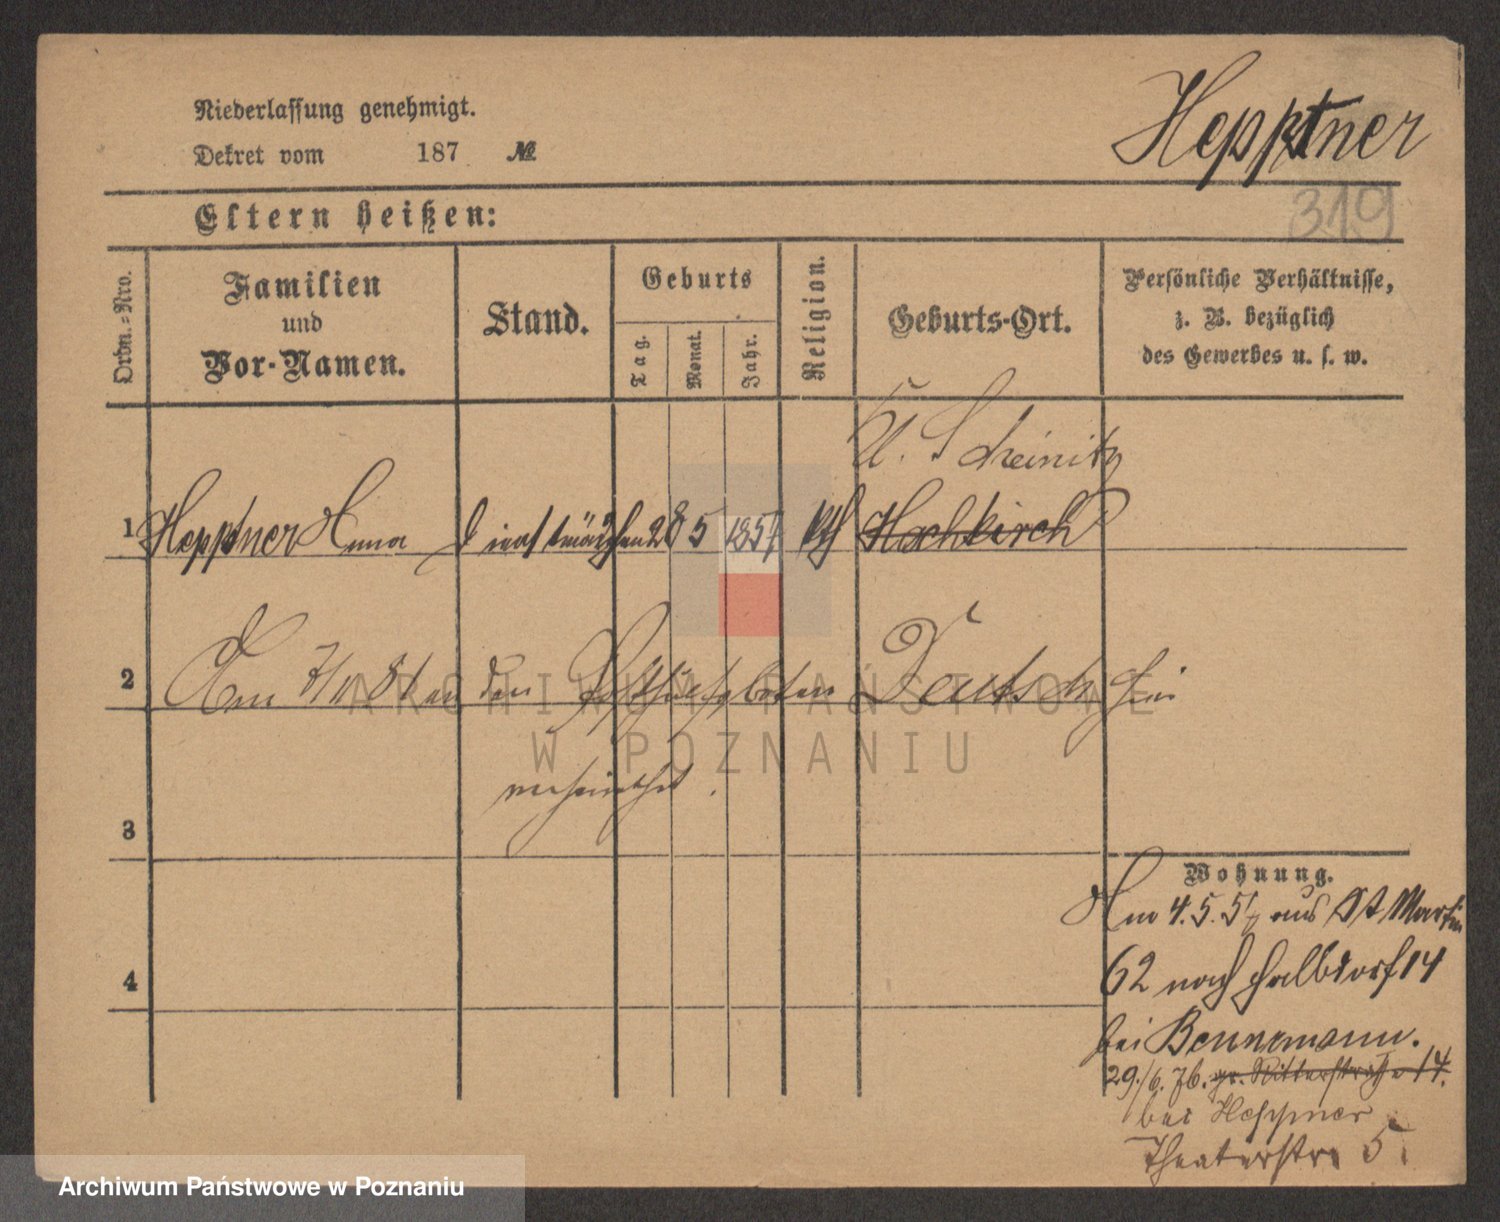 Niederlassung genehmigt.
Dekret vom 187 №
Heppner
319
Eltern heißen:
Ordn.-Nro.
Familien
und
Vor-Namen.
Stand.
Geburts
Tag.
Monat.
Jahr.
Religion.
Geburts-Ort.
Persönliche Verhältnisse,
z. B. bezüglich
des Gewerbes u. s. w.
1 Heppner Anna Dienstmädchen 28 5 1857 kth Hochkirch
2 Am den Deutsch hier
verheirathet.
3
4
Wohnung.
4.5. aus St Martin
62 nach Halbdorf 14
bei Bennemann.
29./6. 76. gr. Ritterstraße 14.
bei Heppner
Theaterstr. 5.
ARCHIWUM PAŃSTWOWE
W POZNANIU
Archiwum Państwowe w Poznaniu